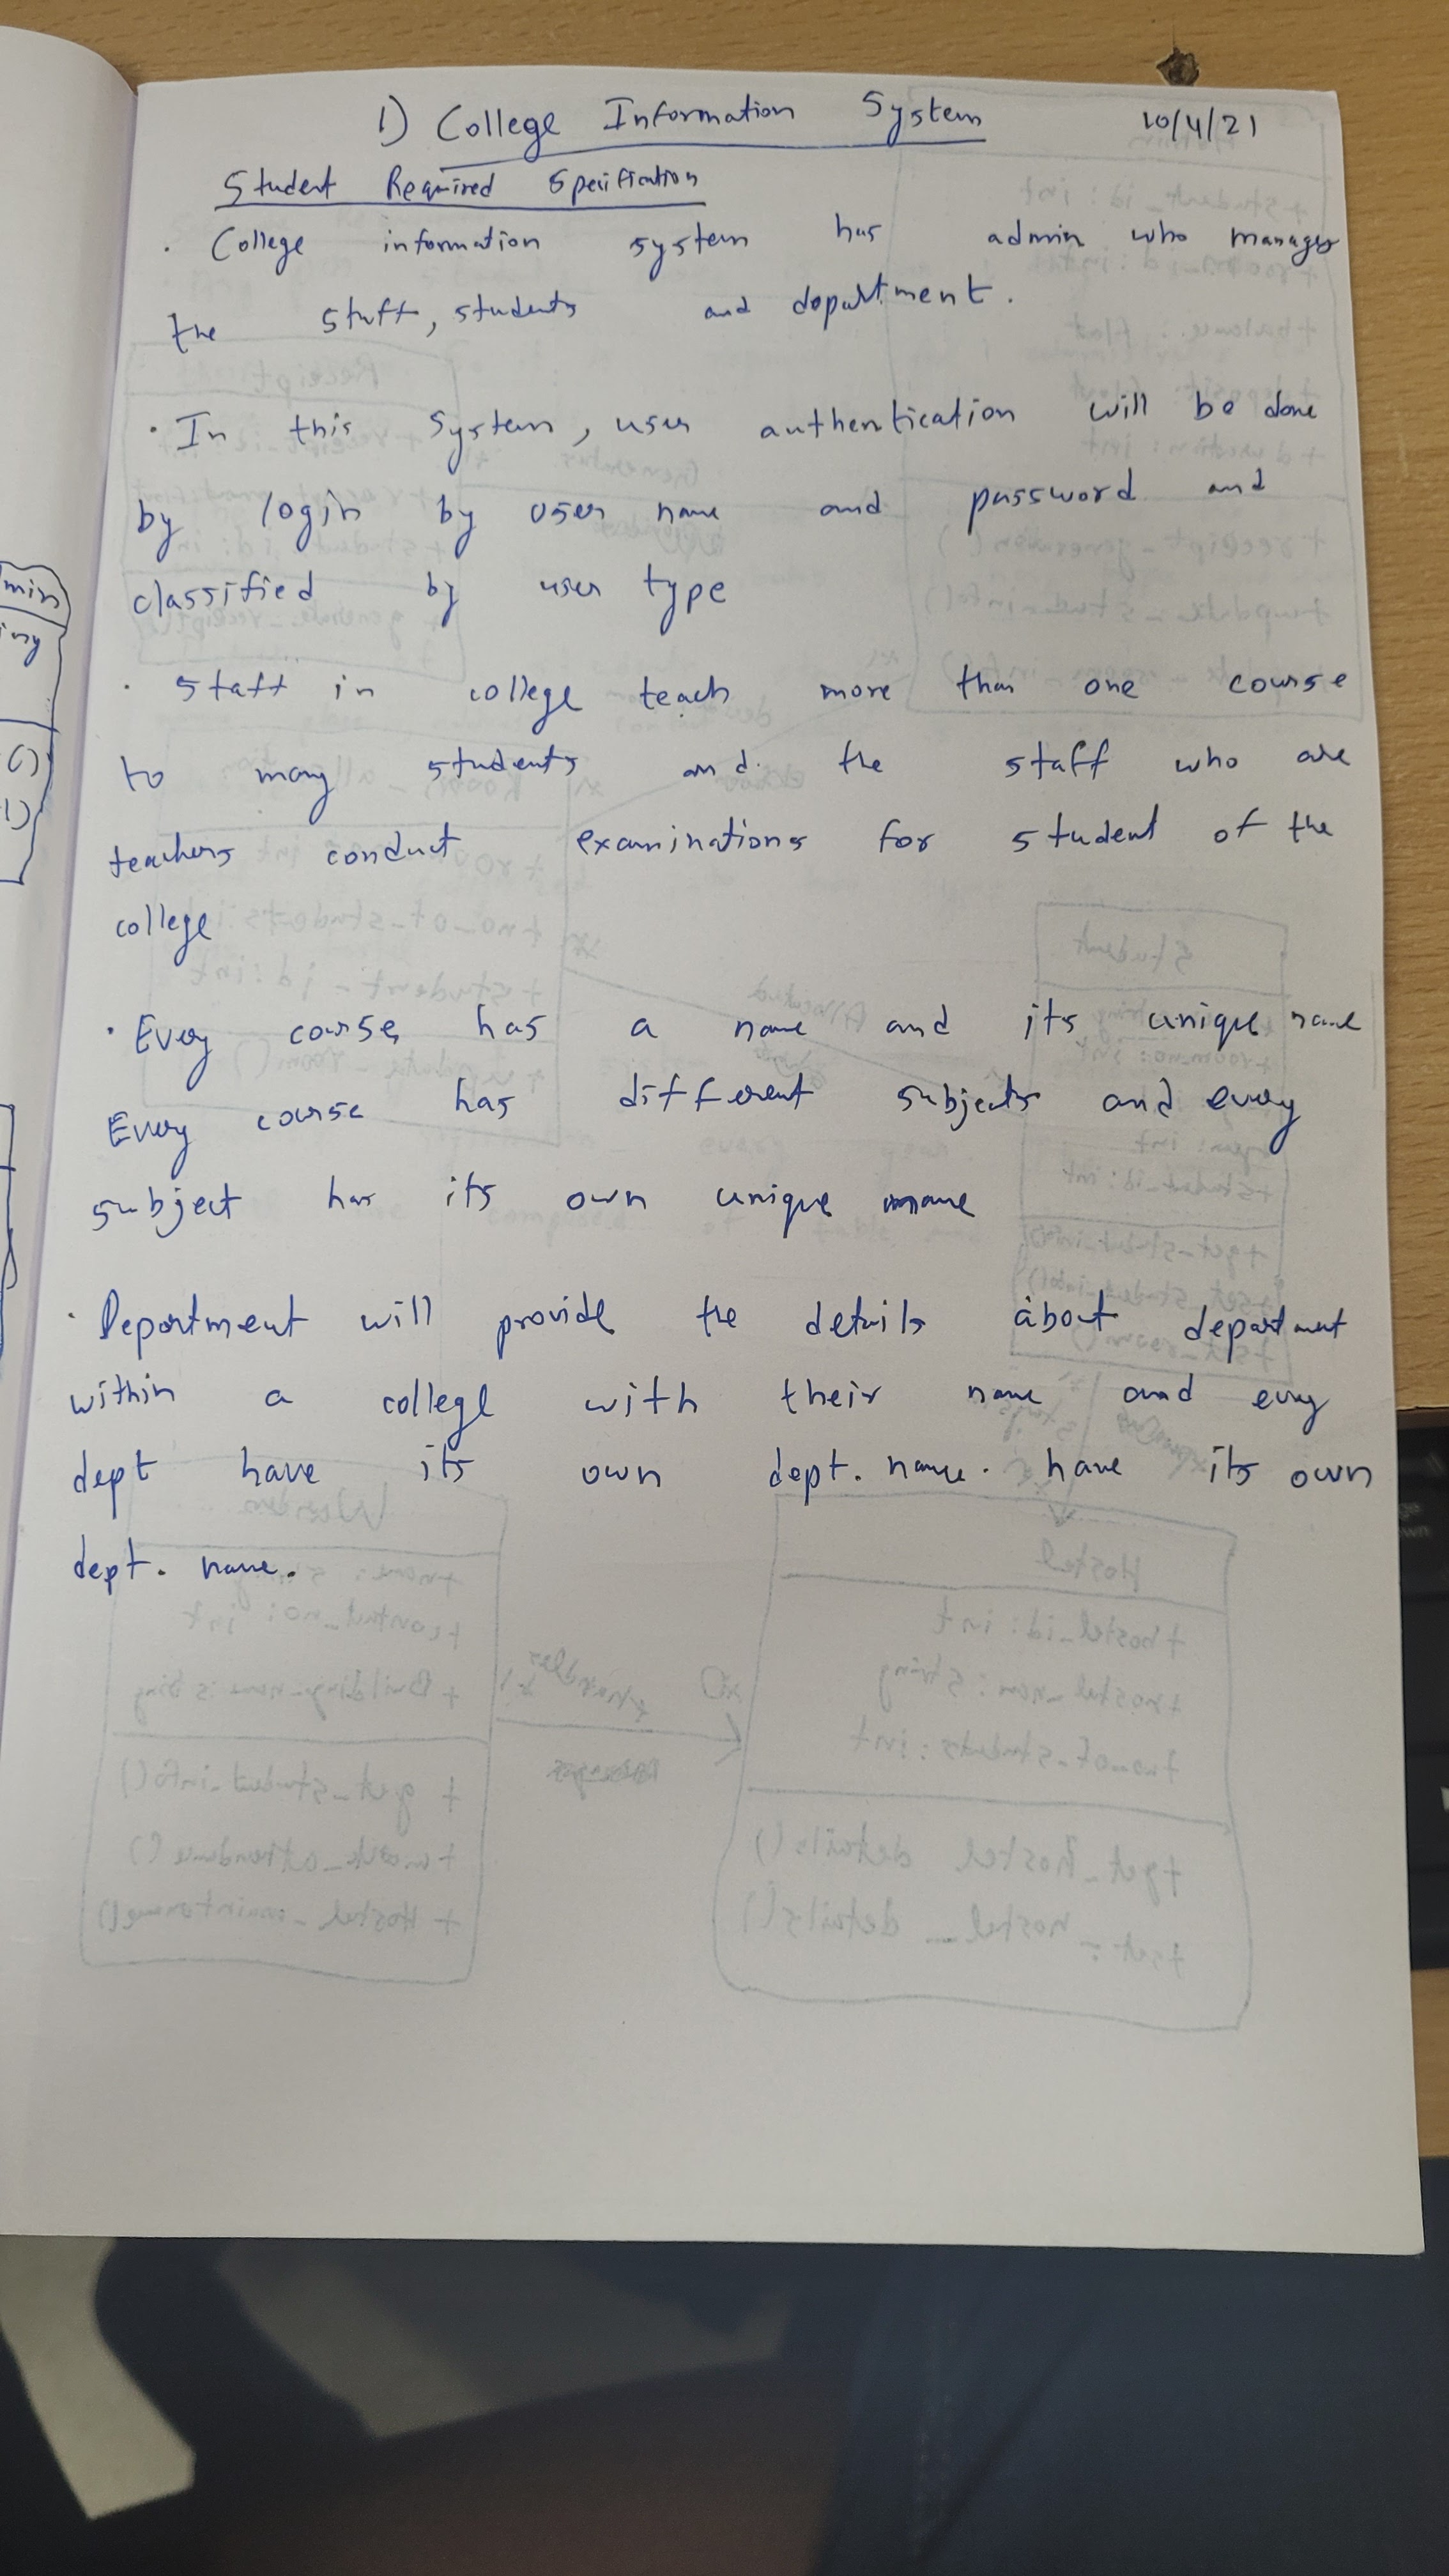 1) College Information System 10/4/21
Student Required Specification
· College information system has admin who manages
the staff, students and department.
· In this system, user authentication will be done
by login by user name and password and
classified by user type
· Staff in college teach more than one course
to many students and the staff who are
teachers conduct examinations for student of the
college
· Every course has a name and its unique name
Every course has different subjects and every
subject has its own unique name
· Department will provide the details about department
within a college with their name and every
dept have its own dept. name. have its own
dept. name.